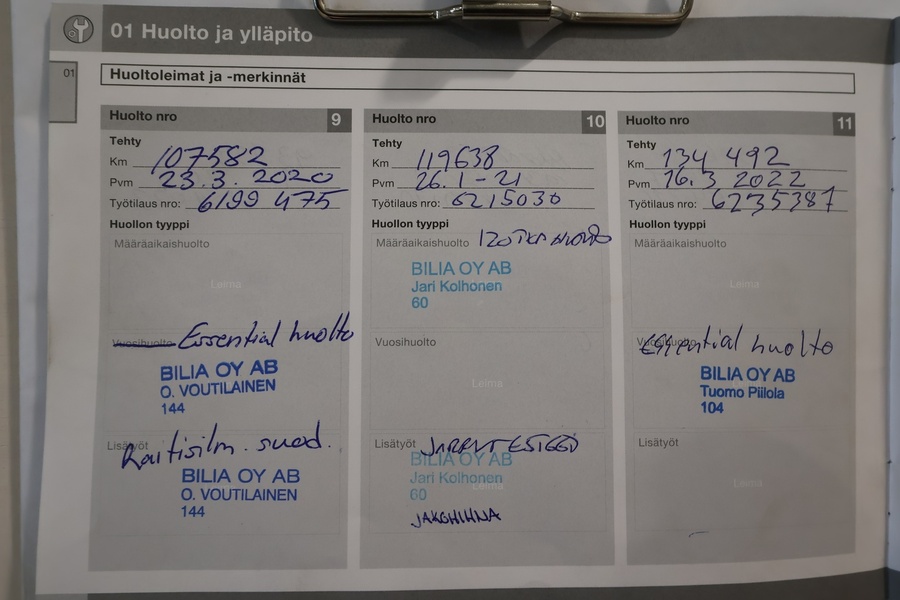 01 Huolto ja ylläpito
01
Huoltoleimat ja -merkinnät
Huolto nro 9
Tehty
Km 107582
Pvm 23.3. 2020
Työtilaus nro: 6199 475
Huollon tyyppi
Määräaikaishuolto
Leima
Vuosihuolto Essential huolto
BILIA OY AB
O. VOUTILAINEN
144
Lisätyöt
Raitisilm. suod.
BILIA OY AB
O. VOUTILAINEN
144
Huolto nro 10
Tehty
Km 119638
Pvm 26.1-21
Työtilaus nro: 6215030
Huollon tyyppi
Määräaikaishuolto 120TKM HUOLTO
BILIA OY AB
Jari Kolhonen
60
Vuosihuolto
Leima
Lisätyöt
BILIA OY AB
Jari Kolhonen
60 Leima
JAKOHIHNA
Huolto nro 11
Tehty
Km 134 492
Pvm 16.3 2022
Työtilaus nro: 6235387
Huollon tyyppi
Määräaikaishuolto
Leima
Vuosihuolto Essential huolto
BILIA OY AB
Tuomo Piilola
104
Lisätyöt
Leima